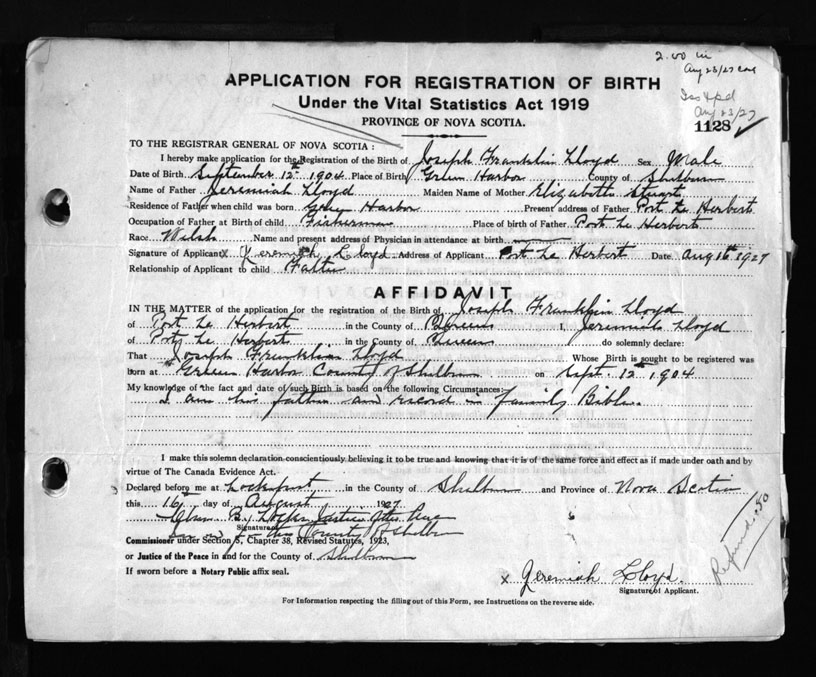 2.00 in
Aug 23/27
APPLICATION FOR REGISTRATION OF BIRTH
Under the Vital Statistics Act 1919
Aug 23/27
PROVINCE OF NOVA SCOTIA.
1128
TO THE REGISTRAR GENERAL OF NOVA SCOTIA:
I hereby make application for the Registration of the Birth of Joseph Franklin Lloyd Sex Male
Date of Birth September 12th 1904 Place of Birth Green Harbor County of Shelburn
Name of Father Jeremiah Lloyd Maiden Name of Mother Elizabeth Stuart
Residence of Father when child was born Green Harbor Present address of Father Port Le Herbert
Occupation of Father at Birth of child Fisherman Place of birth of Father Port Le Herbert
Race Welsh Name and present address of Physician in attendance at birth
Signature of Applicant x Jeremiah Lloyd Address of Applicant Port Le Herbert Date Aug 16th 1927
Relationship of Applicant to child Father
AFFIDAVIT
IN THE MATTER of the application for the registration of the Birth of Joseph Franklin Lloyd
of Port Le Herbert in the County of Queens I, Jeremiah Lloyd
of Port Le Herbert in the County of Queens do solemnly declare:
That Joseph Franklin Lloyd Whose Birth is sought to be registered was
born at Green Harbor County of Shelburn on Sept. 12th 1904
My knowledge of the fact and date of such Birth is based on the following Circumstances:
I am his father and record in family Bible.
I make this solemn declaration conscientiously believing it to be true and knowing that it is of the same force and effect as if made under oath and by
virtue of The Canada Evidence Act.
Declared before me at Lockeport in the County of Shelburn and Province of Nova Scotia
this 16th day of August 1927
Justice of the Peace
Signature of
County of Shelburn
Commissioner under Section 5, Chapter 38, Revised Statutes, 1923,
or Justice of the Peace in and for the County of Shelburn
If sworn before a Notary Public affix seal.
x Jeremiah Lloyd.
Signature of Applicant.
Refund .50
For Information respecting the filling out of this Form, see Instructions on the reverse side.